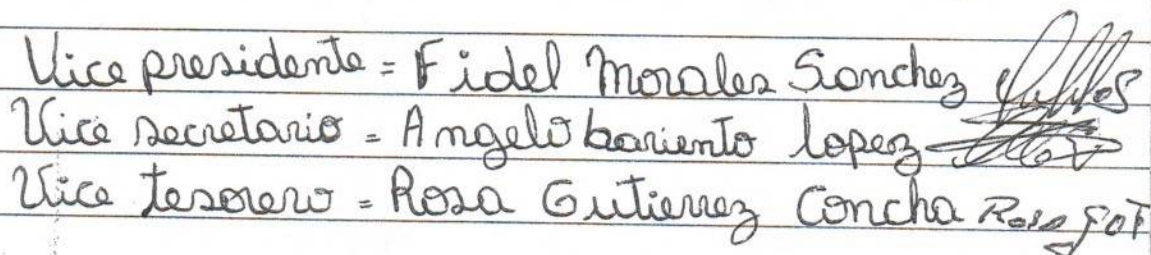 Vice presidente = Fidel Morales Sanchez
Vice secretario = Angelo bariento lopez
Vice tesorero = Rosa Gutierrez Concha Rosa